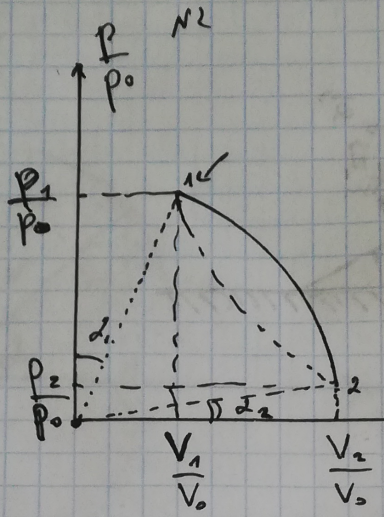 N2
P/P0
1
P1/P0
α1
P2/P0
2
α2
V1/V0
V2/V0